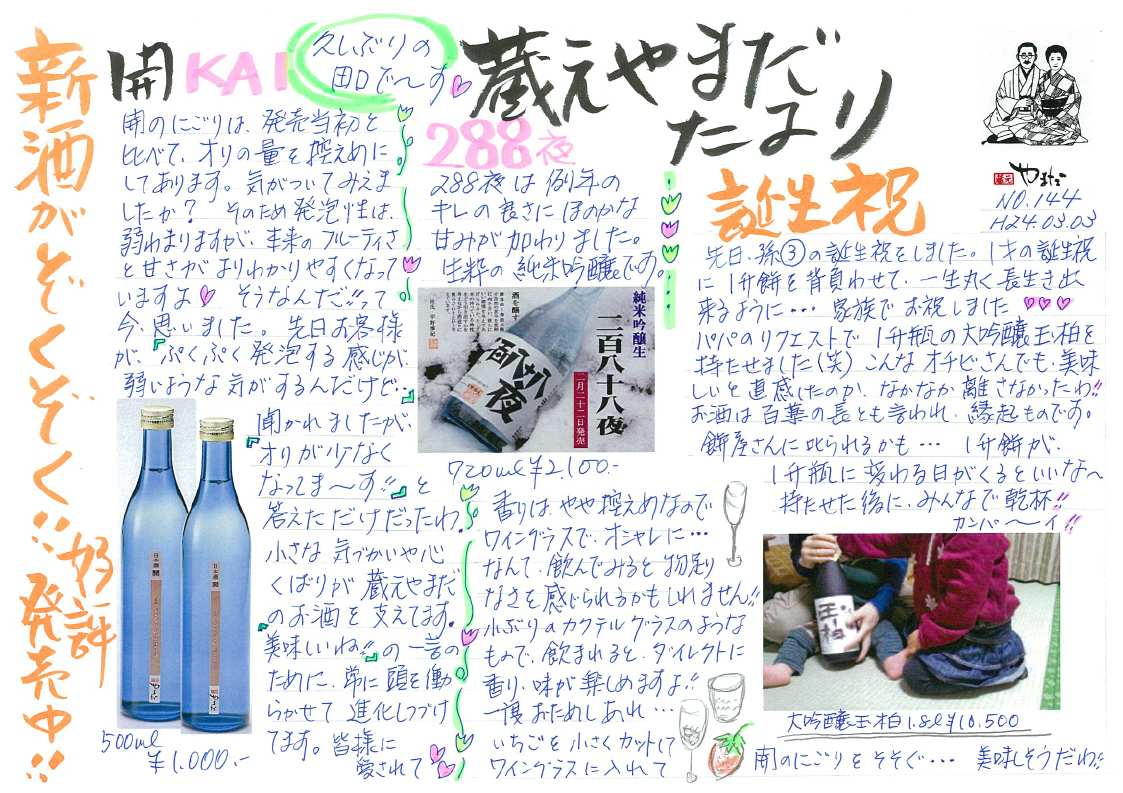 新酒がぞくぞく!!
好評
発売中!!
開 KAI
久しぶりの
田口で〜す
蔵元やまだ
たより
やまだ
NO.144
H24.03.03
開のにごりは、発売当初と
比べて、オリの量を控えめに
してあります。気がついてみえま
したか? そのため発泡性は、
弱わまりますが、本来のフルーティさ
と甘さがよりわかりやすくなって
いますよ♡ そうなんだ!!って
今、思いました。先日お客様
が、『ぷくぷく発泡する感じが、
弱いような気がするんだけど…』
聞かれましたが、
『オリが少なく
なってま〜す!!』と
答えただけだったわ。
小さな気づかいや心
くばりが蔵元やまだ
のお酒を支えてます。
『美味しいね!!』の一言の
ために、常に頭を働
らかせて進化しつづけ
てます。皆様に
愛されて
500ml
¥1,000.-
288夜
288夜は例年の
キレの良さにほのかな
甘みが加わりました。
生粋の純米吟醸です。
純米吟醸生
二百八十八夜
二月二十二日発売
酒を醸す
720ml ¥2,100.-
香りは、やや控えめなので
ワイングラスで、オシャレに…
なんて、飲んでみると物足り
なさを感じられるかもしれません!!
小ぶりのカクテルグラスのような
もので、飲まれると、ダイレクトに
香り、味が楽しめますよ!!
一度おためしあれ…
いちごを小さくカットして
ワイングラスに入れて
開のにごりをそそぐ… 美味しそうだわ!!
誕生祝
先日、孫③の誕生祝をしました。1才の誕生祝
に1升餅を背負わせて、一生丸く長生き出
来るように… 家族でお祝しました♡♡♡
パパのリクエストで1升瓶の大吟醸玉柏を
持たせました(笑) こんなオチビさんでも、美味
しいと直感したのか、なかなか離さなかったわ!!
お酒は百薬の長とも言われ、縁起ものです。
餅屋さんに叱られるかも… 1升餅が、
1升瓶に変わる日がくるといいな〜
持たせた後に、みんなで乾杯!!
カンパ〜イ!!
玉柏
大吟醸玉柏1.8ℓ¥10,500